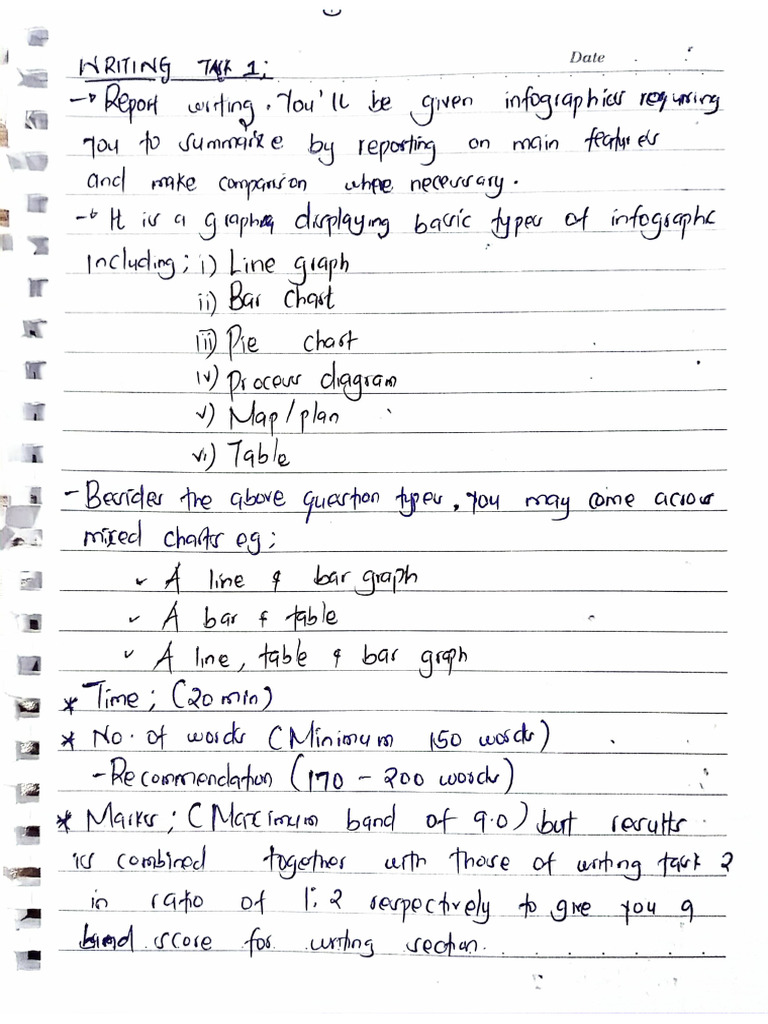 Date
WRITING TASK 1:
-> Report writing. You'll be given infographics requiring
you to summarize by reporting on main features
and make comparison where necessary.
-> It is a graph displaying basic types of infographc
including; i) Line graph
ii) Bar chart
iii) Pie chart
iv) Process diagram
v) Map/plan
vi) Table
- Besides the above question types, you may come across
mixed charts eg;
✓ A line & bar graph
✓ A bar & table
✓ A line, table & bar graph
* Time; (20 min)
* No. of words (Minimum 150 words)
- Recommendation (170 - 200 words)
* Marks; (Maximum band of 9.0) but results
is combined together with those of writing task 2
in ratio of 1:2 respectively to give you a
band score for writing section.